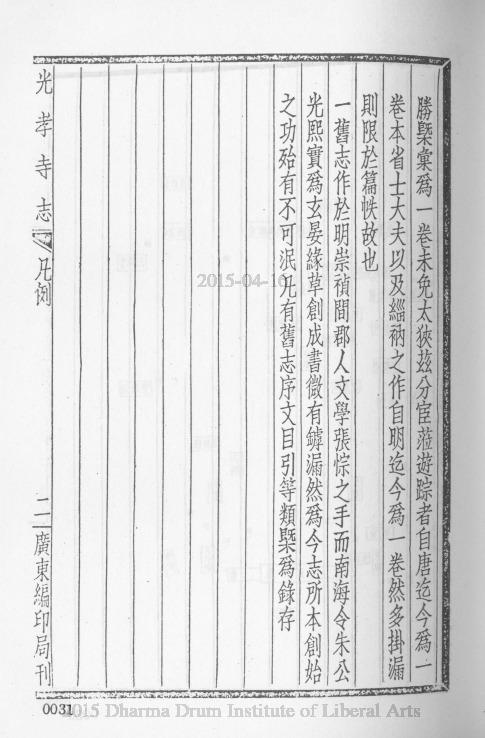 勝槩彙爲一卷未免太狹玆分宦蒞遊踪者自唐迄今爲一
卷本省士大夫以及緇衲之作自明迄今爲一卷然多掛漏
則限於篇帙故也
一舊志作於明崇禎間郡人文學張悰之手而南海令朱公
光熙實爲玄晏緣草創成書微有罅漏然爲今志所本創始
之功殆有不可泯凡有舊志序文目引等類槩爲錄存
光孝寺志 凡例 二 廣東編印局刊
2015-04-10
0031
2015 Dharma Drum Institute of Liberal Arts